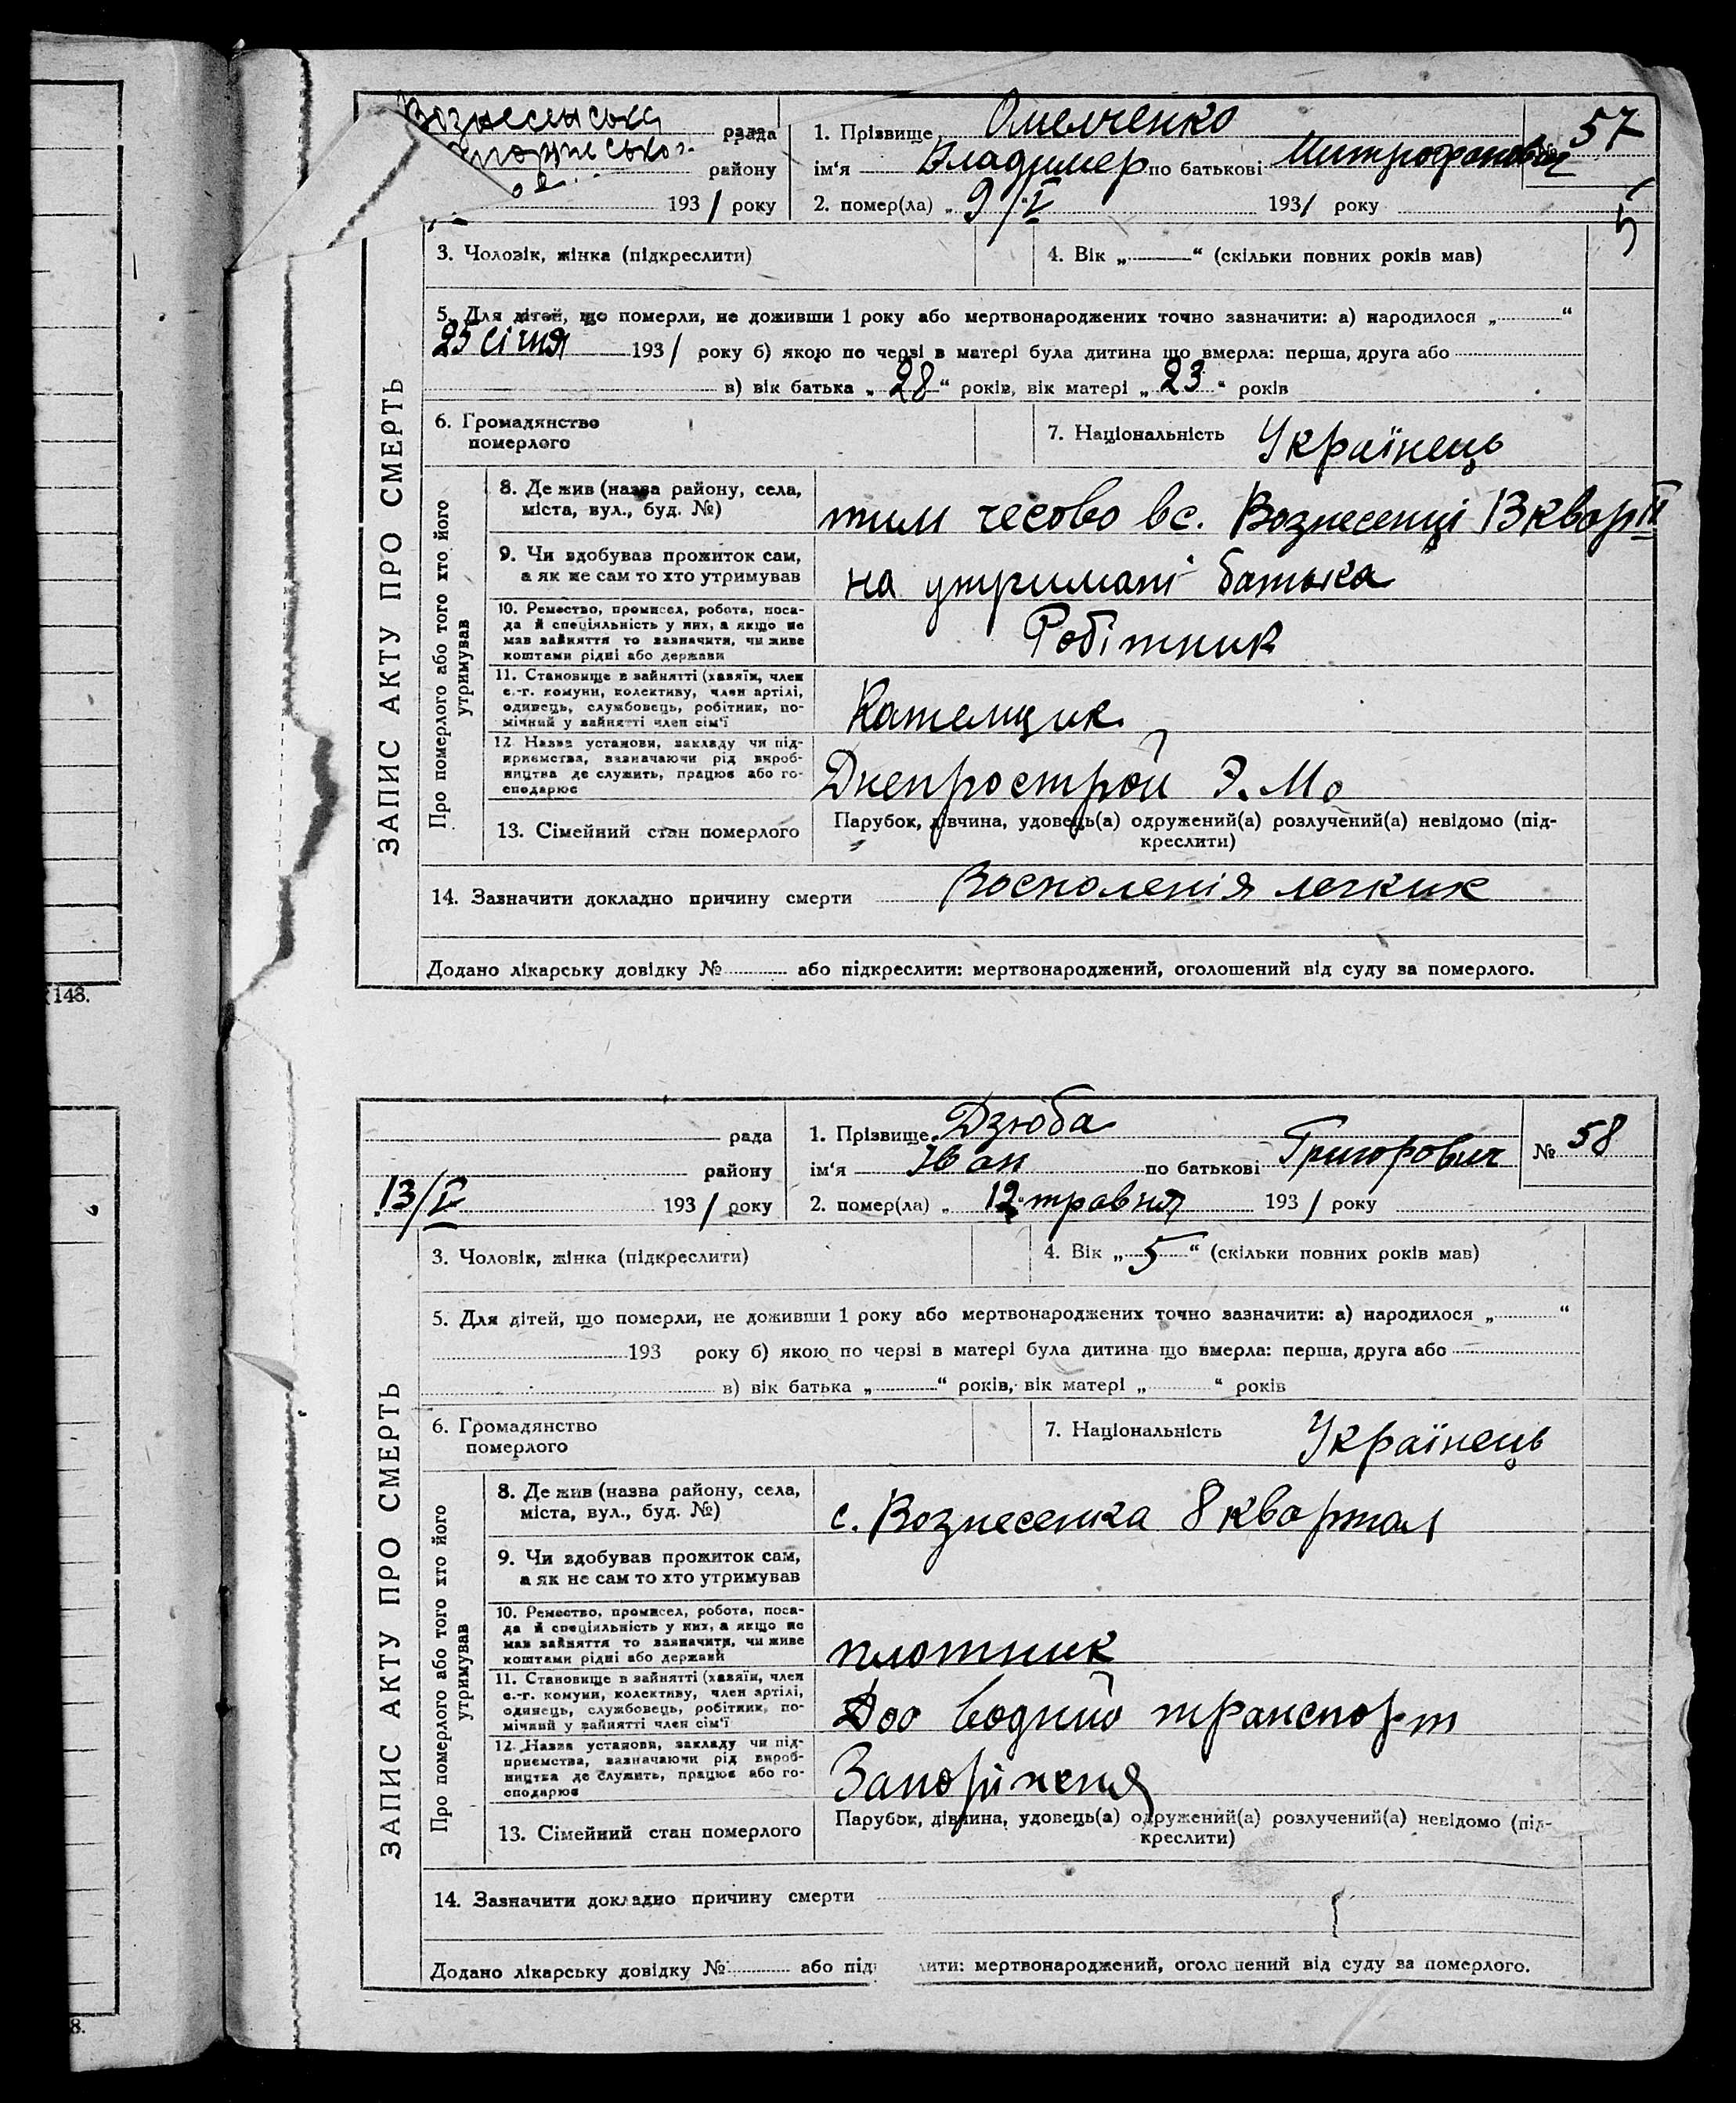 148.
8.
Вознесенська рада
району
193 1 року
1. Прізвище Омелченко
ім‘я Владимер по батькові Митрофанович
57
2. помер(ла) „ 9/V 193 1 року
5
ЗАПИС АКТУ ПРО СМЕРТЬ
3. Чоловік, жінка (підкреслити)
4. Вік „ “ (скільки повних років мав)
5. Для дітей, що померли, не доживши 1 року або мертвонароджених точно зазначити: а) народилося „ “
25 січня 193 1 року б) якою по черзі в матері була дитина що вмерла: перша, друга або
в) вік батька „ 28 “ років, вік матері „ 23 “ років
6. Громадянство
померлого
7. Національність Українець
Про померлого або того хто його
утримував
8. Де жив (назва району, села,
міста, вул., буд. №)
тим чесово в с. Вознесенці 13 квар
9. Чи здобував прожиток сам,
а як не сам то хто утримував
на утримані батька
10. Ремество, промисел, робота, поса-
да й спеціяльність у них, а якщо не
мав зайняття то зазначити, чи живе
коштами рідні або держави
Робітник
11. Становище в зайнятті (хазяїн, член
с.-г. комуни, колективу, член артілі,
одинець, службовець, робітник, по-
мічний у зайнятті член сім‘ї
Катемщик
12. Назва установи, закладу чи під-
приємства, зазначаючи рід вироб-
ництва де служить, працює або го-
сподарює
Днепрострой Э. М
13. Сімейний стан померлого
Парубок, дівчина, удовець(а) одружений(а) розлучений(а) невідомо (під-
креслити)
14. Зазначити докладно причину смерти Восполенія легких
Додано лікарську довідку № або підкреслити: мертвонароджений, оголошений від суду за померлого.
рада
району
13/V 193 1 року
1. Прізвище Дзюба
ім‘я Іван по батькові Григорович
№ 58
2. помер(ла) „ 12 “ травня 193 1 року
ЗАПИС АКТУ ПРО СМЕРТЬ
3. Чоловік, жінка (підкреслити)
4. Вік „ 5 “ (скільки повних років мав)
5. Для дітей, що померли, не доживши 1 року або мертвонароджених точно зазначити: а) народилося „ “
193 року б) якою по черзі в матері була дитина що вмерла: перша, друга або
в) вік батька „ “ років, вік матері „ “ років
6. Громадянство
померлого
7. Національність Українець
Про померлого або того хто його
утримував
8. Де жив (назва району, села,
міста, вул., буд. №)
с. Вознесенка 8 квартал
9. Чи здобував прожиток сам,
а як не сам то хто утримував
10. Ремество, промисел, робота, поса-
да й спеціяльність у них, а якщо не
мав зайняття то зазначити, чи живе
коштами рідні або держави
плотник
11. Становище в зайнятті (хазяїн, член
с.-г. комуни, колективу, член артілі,
одинець, службовець, робітник, по-
мічний у зайнятті член сім‘ї
водний транспорт
12. Назва установи, закладу чи під-
приємства, зазначаючи рід вироб-
ництва де служить, працює або го-
сподарює
Запоріження
13. Сімейний стан померлого
Парубок, дівчина, удовець(а) одружений(а) розлучений(а) невідомо (під-
креслити)
14. Зазначити докладно причину смерти
Додано лікарську довідку № або підк лити: мертвонароджений, оголошений від суду за померлого.